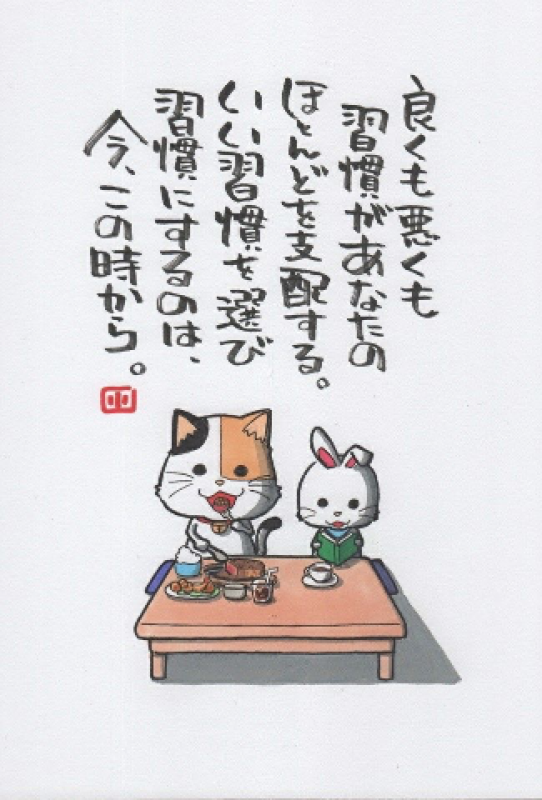 良くも悪くも
習慣があなたの
ほとんどを支配する。
いい習慣を選び
習慣にするのは、
今、この時から。